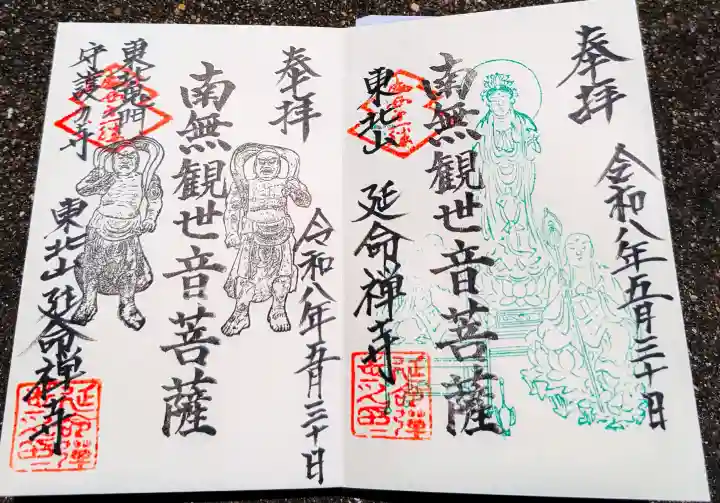 奉拝
令和八年五月三十日
南無観世音菩薩
東北山 延命禅寺
奉拝
令和八年五月三十日
南無観世音菩薩
東北鬼門
守護乃寺
東北山延命禅寺